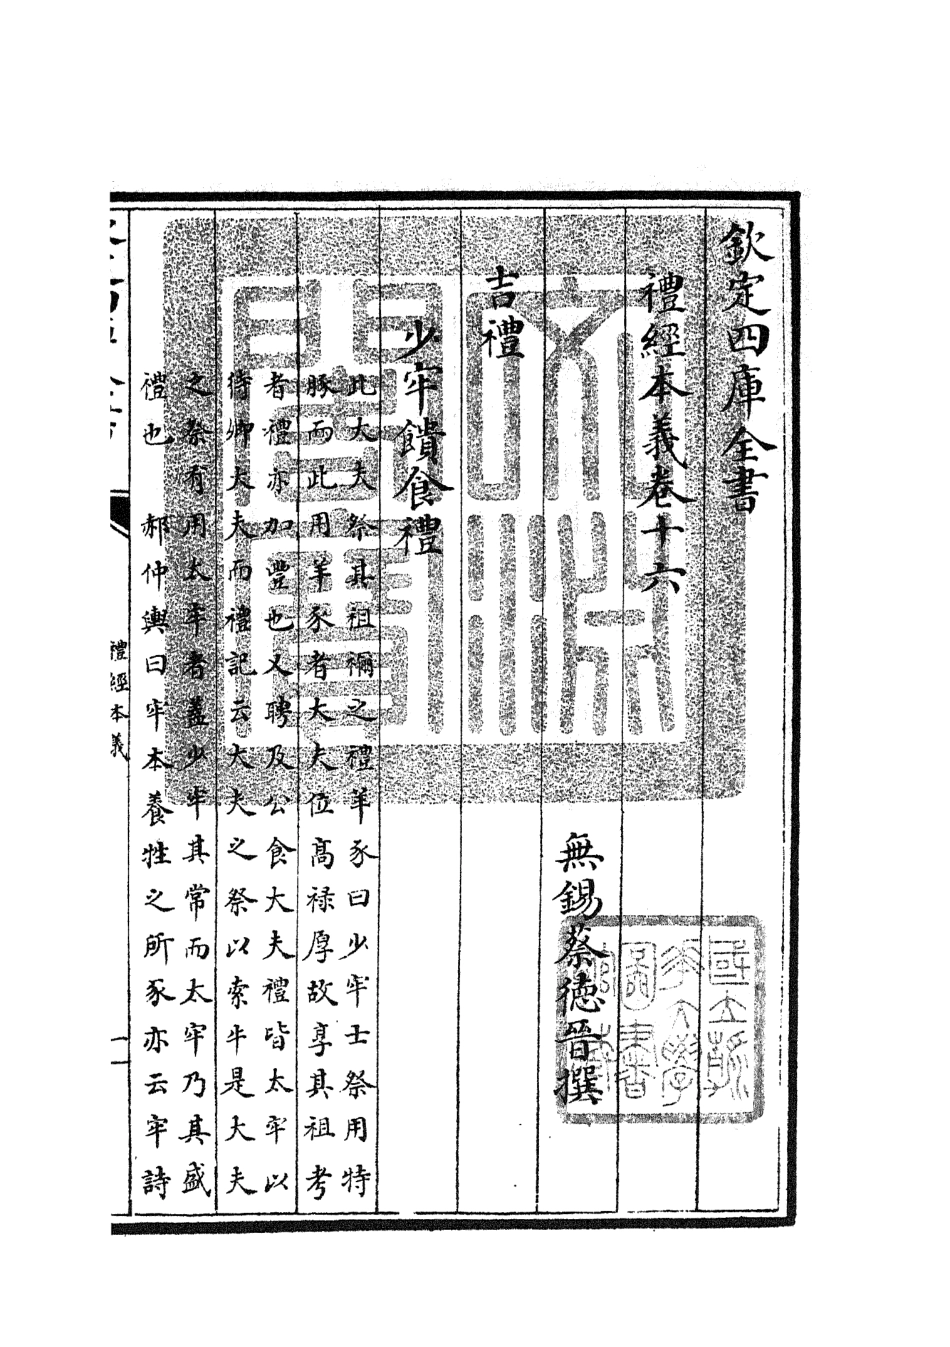 欽定四庫全書
禮經本義卷十六
無錫蔡德晉撰
吉禮
少牢饋食禮
此大夫祭其祖禰之禮羊豕曰少牢士祭用特
豚而此用羊豕者大夫位高祿厚故享其祖考
者禮亦加豐也又聘及公食大夫禮皆太牢以
待卿大夫而禮記云大夫之祭以索牛是大夫
之祭有用太牢者葢少牢其常而太牢乃其盛
禮也　郝仲輿曰牢本養牲之所豕亦云牢詩
禮經本義
一